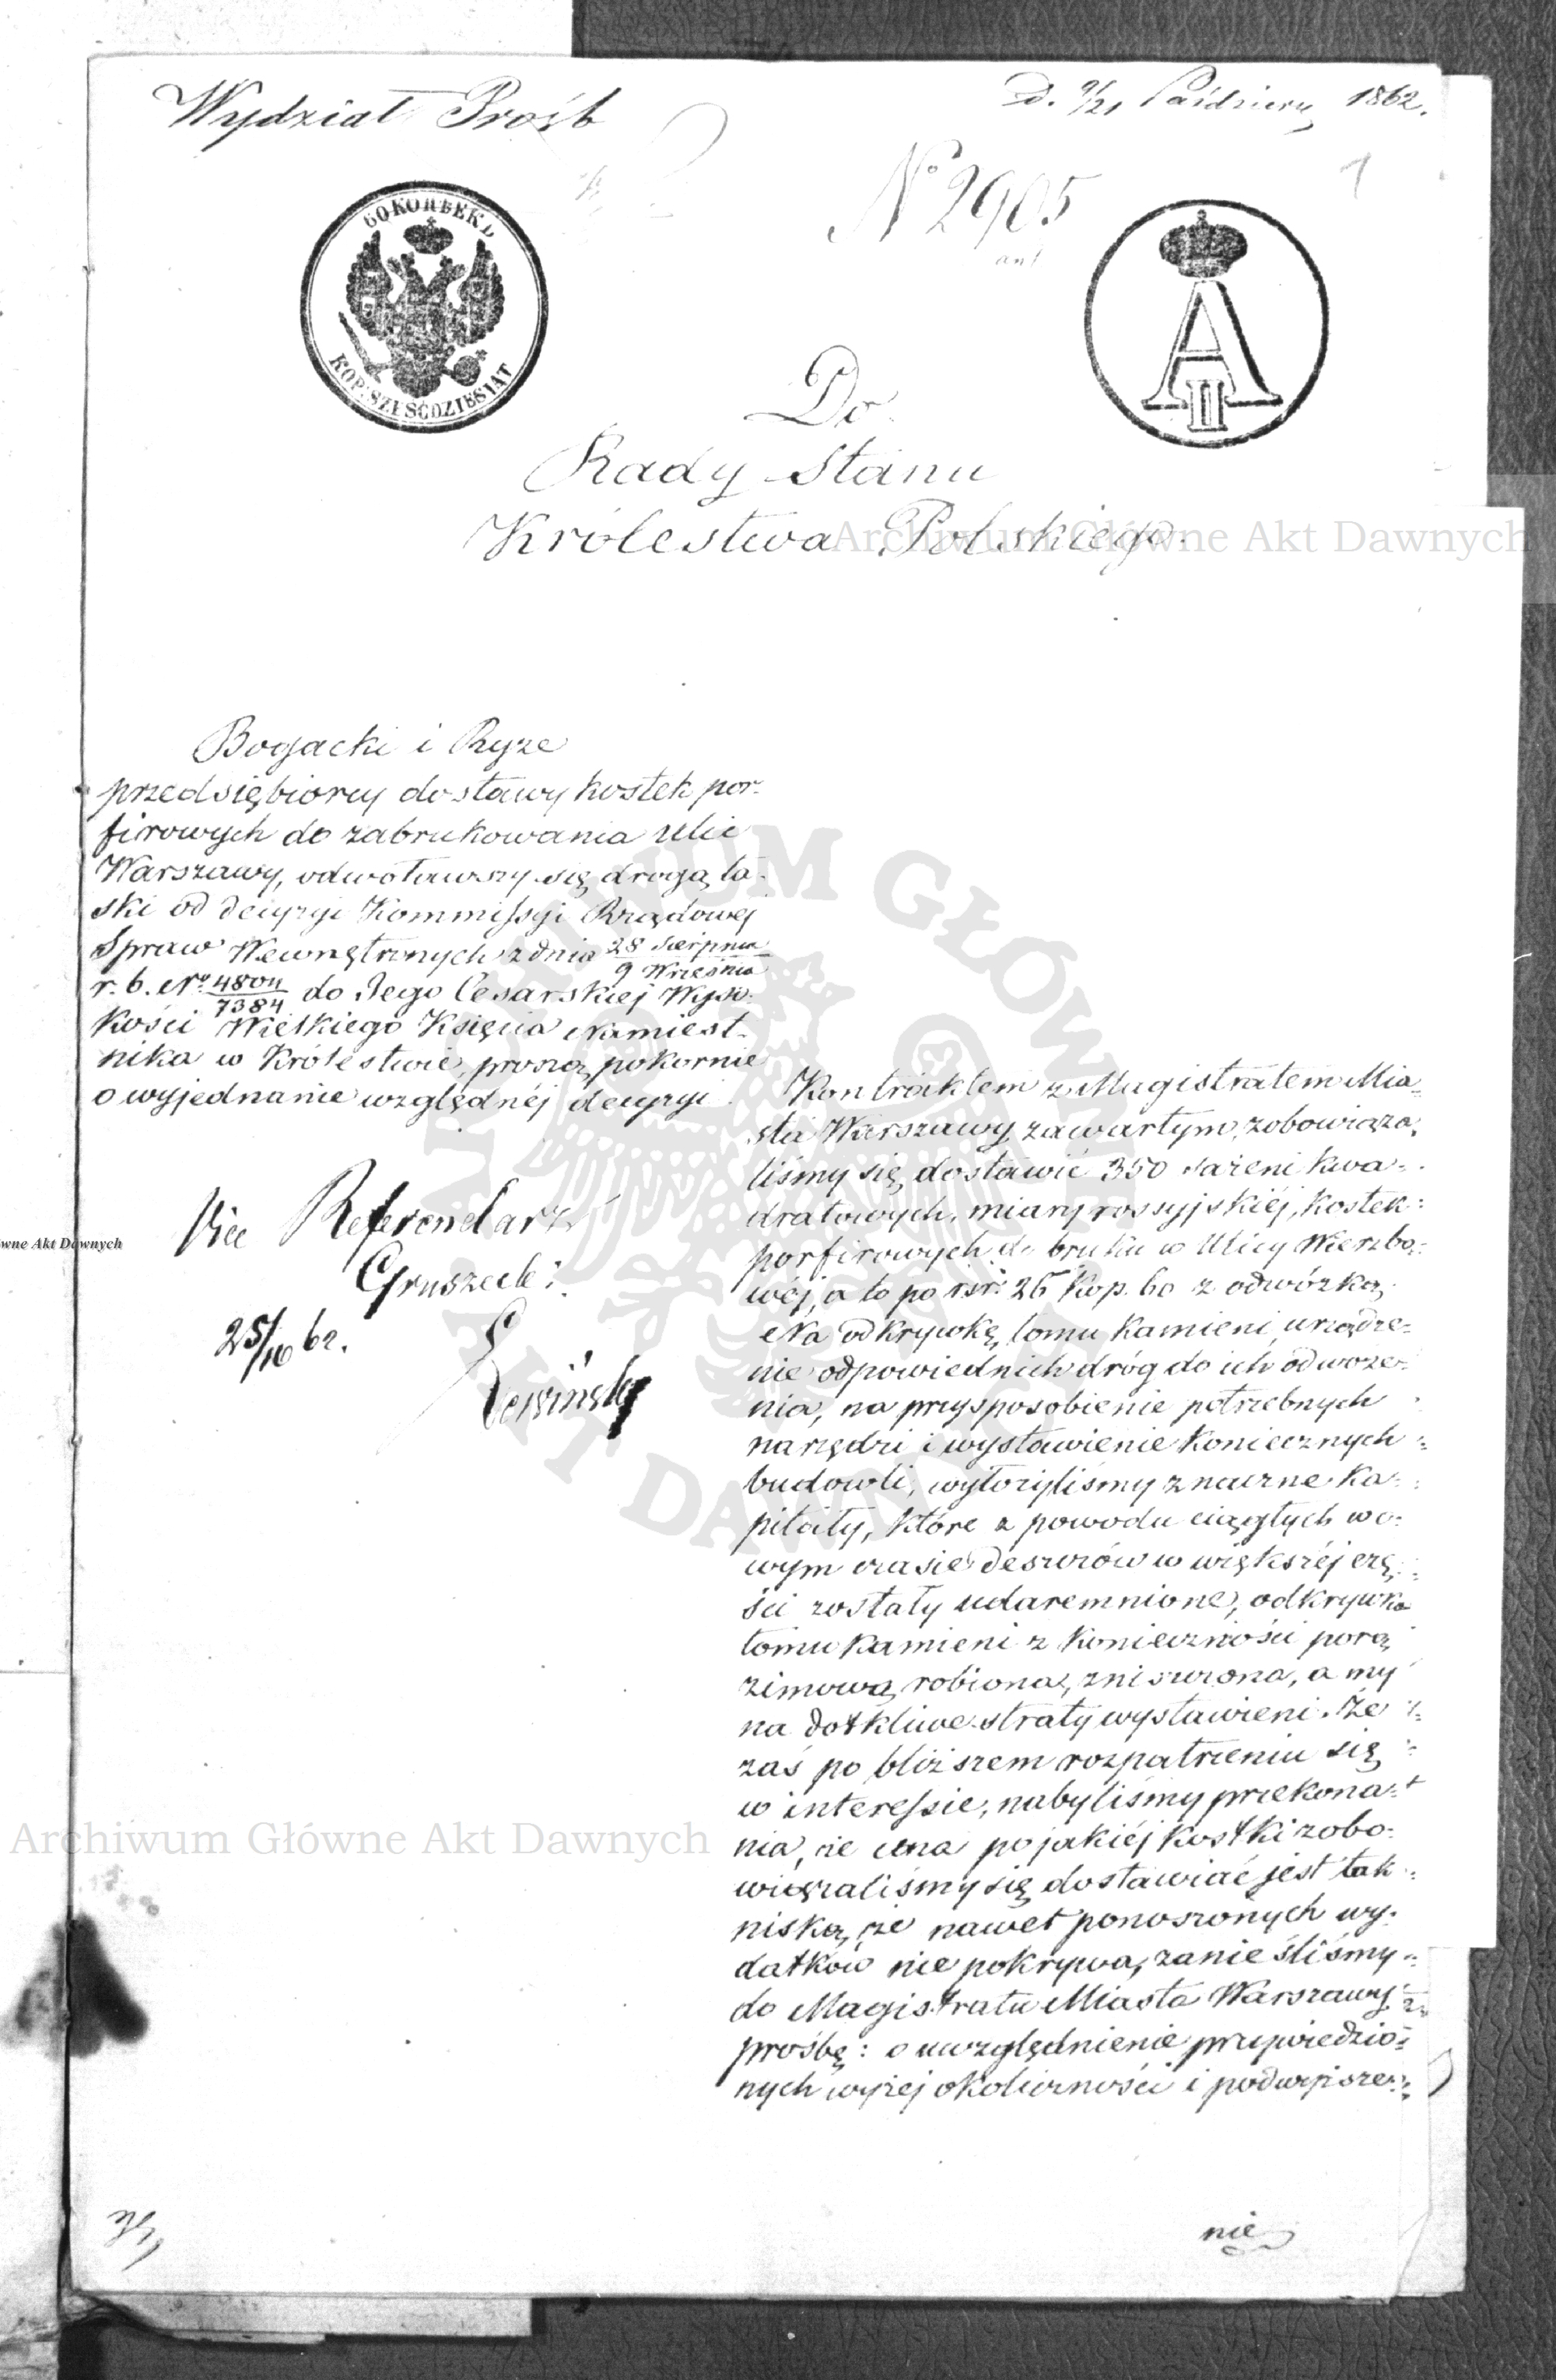 Wydział Próśb
D. 9/21 Paździer. 1862.
No 2905
60 КОПѢЕКЪ
KOP: SZEŚĆDZIESIĄT
A II
Do
Rady Stanu
Królestwa Polskiego.
Bogacki i Ryze
przedsiębiorcy dostawy kostek por-
firowych do zabrukowania ulic
Warszawy, odwoławszy się drogą ła-
ski od decyzyi Kommissyi Rządowej
Spraw Wewnętrznych z dnia 28 Sierpnia / 9 Września
r. b. No 4804/7384 do Jego Cesarskiej Wyso-
kości Wielkiego Księcia Namiest-
nika w Królestwie, proszą pokornie
o wyjednanie względnéj decyzyi.
Vice Referendarz
Gruszecki
25/10 62.
Kontraktem z Magistratem Mia-
sta Warszawy zawartym, zobowiąza-
liśmy się dostawić 350 sążeni kwa-
dratowych, miary rossyjskiéj, kostek
porfirowych do bruku w Ulicy Wierzbo-
wéj, a to po rsr. 26 kop. 60 z odwózką.
Na odkrywkę łomu kamieni, urządze-
nie odpowiednich dróg do ich odwoże-
nia, na przysposobienie potrzebnych
narzędzi i wystawienie koniecznych
budowli, wyłożyliśmy znaczne ka-
pitały, które z powodu ciągłych wo-
wym czasie deszczów w większéj czę-
ści zostały udaremnione, odkrywka
łomu kamieni z konieczności porą
zimową robiona, zniszczona, a my
na dotkliwe straty wystawieni. Że
zaś po bliższem rozpatrzeniu się
w interessie, nabyliśmy przekona-
nia, że cena po jakiéj kostki zobo-
wiązaliśmy się dostawiać jest tak
niską, że nawet ponoszonych wy-
datków nie pokrywa, zanieśliśmy
do Magistratu Miasta Warszawy
prośbę: o uwzględnienie przywiedzio-
nych wyżej okoliczności i podwyższe-
nie
Archiwum Główne Akt Dawnych
Archiwum Główne Akt Dawnych
wne Akt Dawnych
ARCHIWUM GŁÓWNE
AKT DAWNYCH